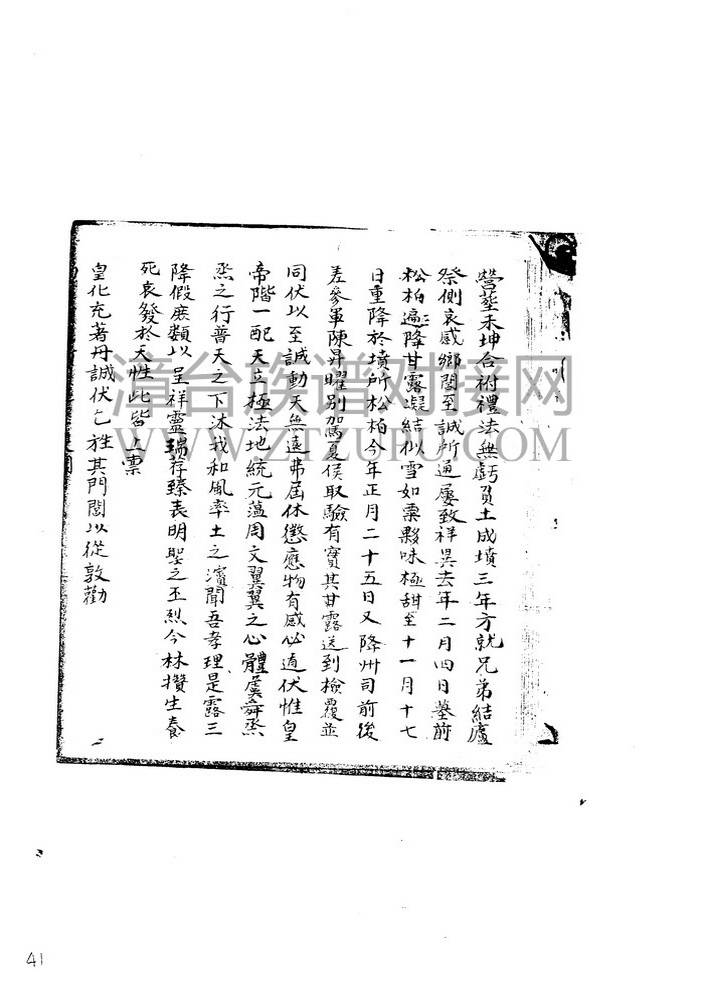 營塟禾坤合祔禮法無虧負土成墳三年方就兄弟結廬
祭側哀感鄉閭至誠所通屢致祥異去年二月四日墓前
松柏遍降甘露凝結似雪如粟夥味極甜至十一月十七
日重降於墳所松柏今年正月二十五日又降州司前後
差參軍陳昇曜別駕夏侯取驗有實其甘露送到檢覆並
同伏以至誠動天無遠弗屆休懲應物有感必通伏惟皇
帝階一配天立極法地統元蘊周文翼翼之心體虞舜烝
烝之行普天之下沐我和風率土之濱聞吾孝理是露三
降假庶類以呈祥靈瑞荐臻表明聖之丕烈今林攢生養
死哀發於天性此皆上稟
皇化充著丹誠伏乞旌其門閭以從敦勸
漳台族谱对接网
WWW.ZTZUPU.COM
41